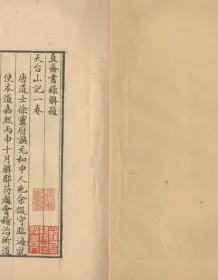 直齋書錄解題
天台山記一卷
唐道士徐靈府譔元和中人也余假守臨海就
使本道嘉熙丙申十月解郡符趨會稽治所道